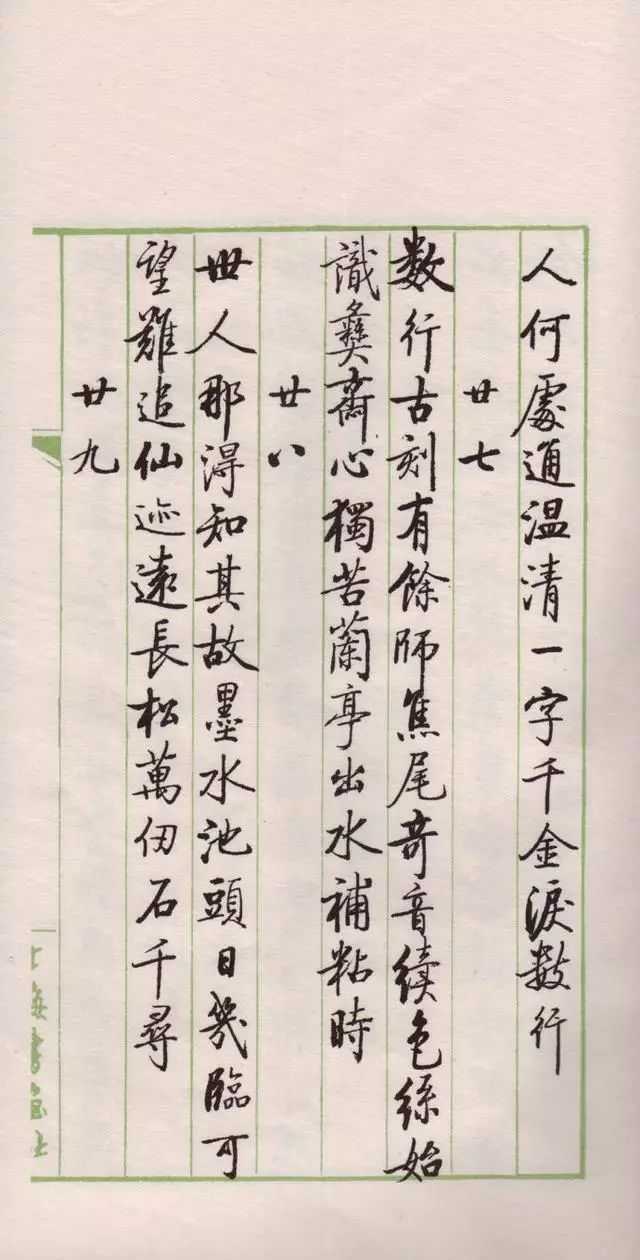 人何處通温清一字千金淚數行
廿七
数行古刻有餘師焦尾奇音續色絲始
識彝齋心獨苦蘭亭出水補粘時
廿八
世人那得知其故墨水池頭日幾臨可
望難追仙迹遠長松萬仞石千尋
廿九
上海書畫社